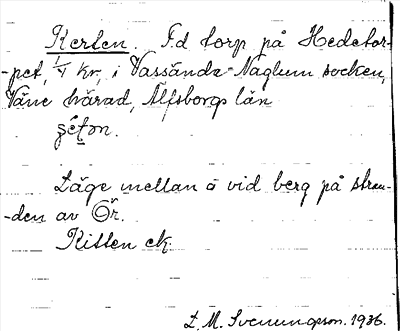 Kersten. F.d torp på Hedetor-
-pet, 1/4 kr, i Vassända-Naglum socken,
Väne härad, Älfsborgs län
Läge mellan å vid berg på stran-
-den av Ör.
Kitten ek.
L. M. Svenungsson. 1936.